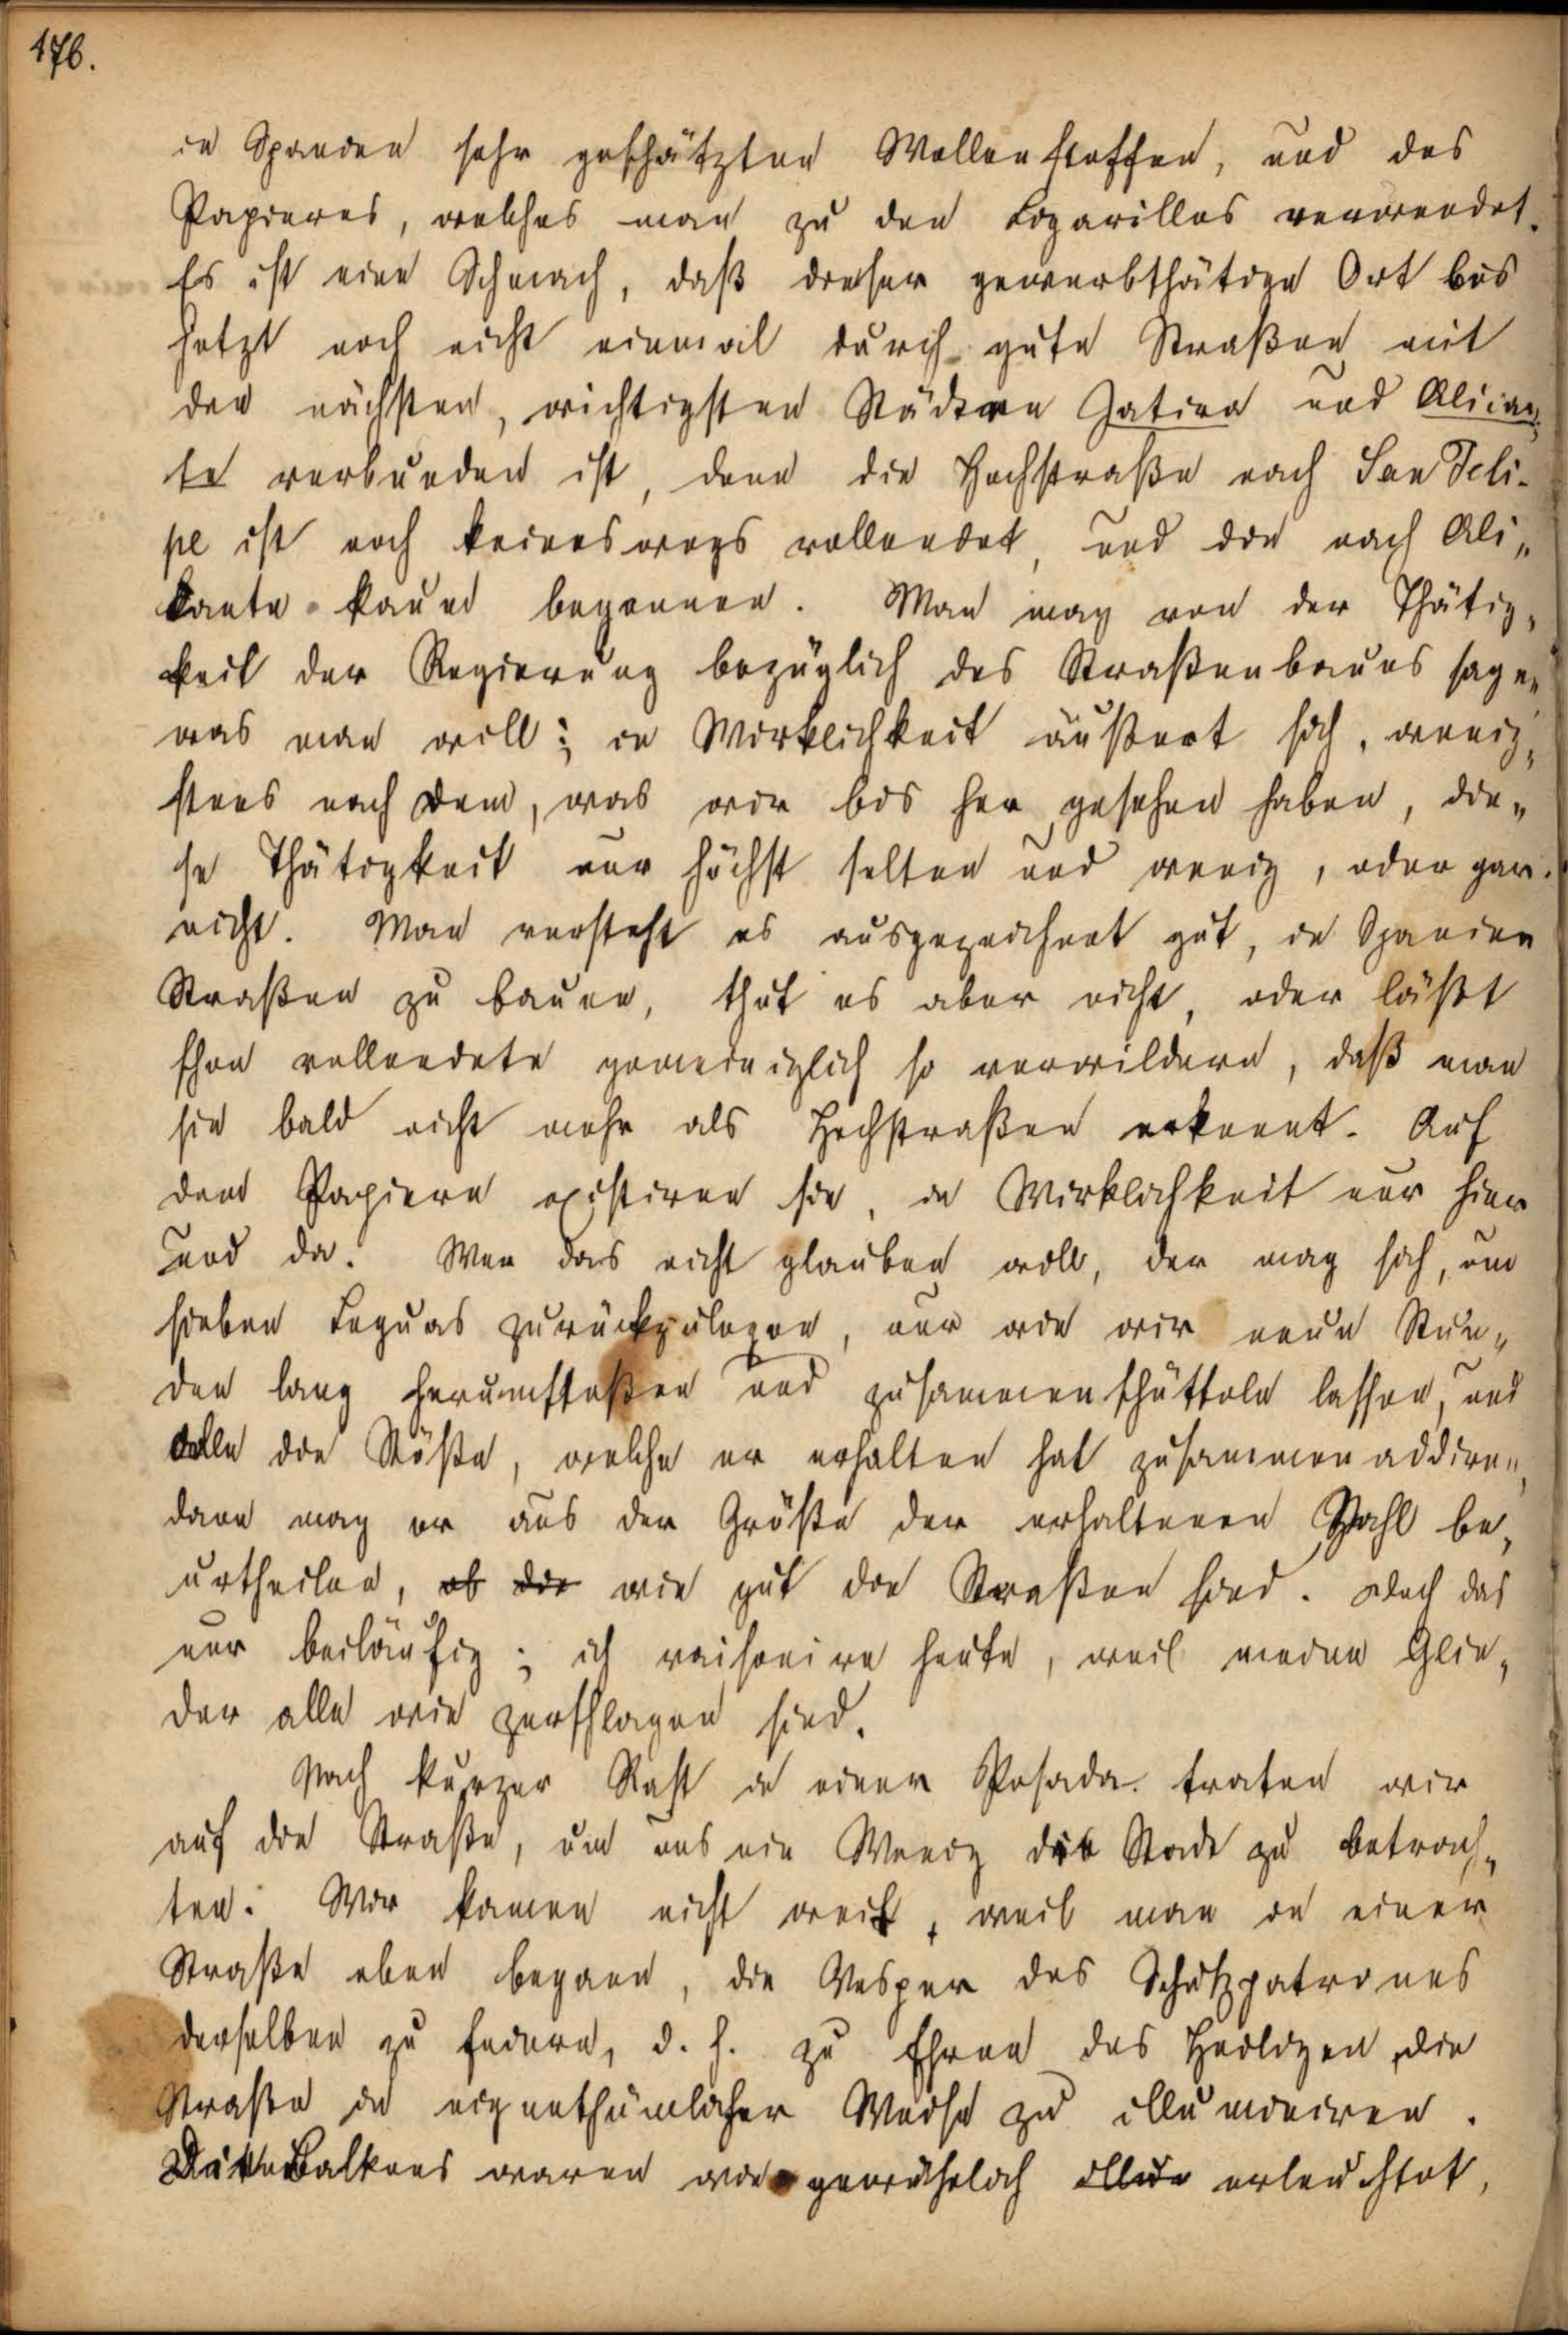 176.
in Spanien sehr geschätzten Wollenstoffen, und des
Papieres, welches man zu den Cigarillos verwendet.
Es ist eine Schmach, daß dieser gewerbthätige Ort bis
jetzt noch nicht einmal durch gute Straßen mit
den nächsten, wichtigsten Städten Jativa und Alican„
te verbunden ist, denn die Hochstraße nach San Feli-
pe ist noch keineswegs vollendet, und die nach Ali„
kante kaum begonnen. Man mag von der Thätig„
keit der Regierung bezüglich des Straßenbaues sagen
was man will; in Wirklichkeit äußert sich, wenig„
stens nach dem, was wir bis her gesehen haben, die„
se Thätigkeit nur höchst selten und wenig, oder gar
nicht. Man versteht es ausgezeichnet gut, in Spanien
Straßen zu bauen, thut es aber nicht, oder läßt
schon vollendete gemeiniglich so verwildern, daß man
sie bald nicht mehr als Hochstraßen erkennt. Auf
dem Papiere existiren sie, in Wirklichkeit nur hier
und da. Wer das nicht glauben will, der mag sich, um
sieben Leguas zurückzulegen, nur wie wir neun Stun„
den lang herumstoßen und zusammenschütteln lassen, und
alle die Stöße, welche er erhalten hat zusammen addiren,
dann mag er aus der Größe der erhaltenen Zahl be„
urtheilen, ob die wie gut die Straßen sind. Doch das
nur beiläufig; ich raisonire heute, weil meine Glie„
der alle wie zerschlagen sind.
Nach kurzer Rast in einer Posada traten wir
auf die Straße, um uns ein Wenig die Stadt zu betrach„
ten. Wir kamen nicht weit, weil man in einer
Straße eben begann, die Vesper des Schutzpatrones
derselben zu feiern, d. h. zu Ehren des Heiligen die
Straße in eigenthümlicher Weise zu illuminiren.
Die Balkons waren wie gewöhnlich illum erleuchtet,